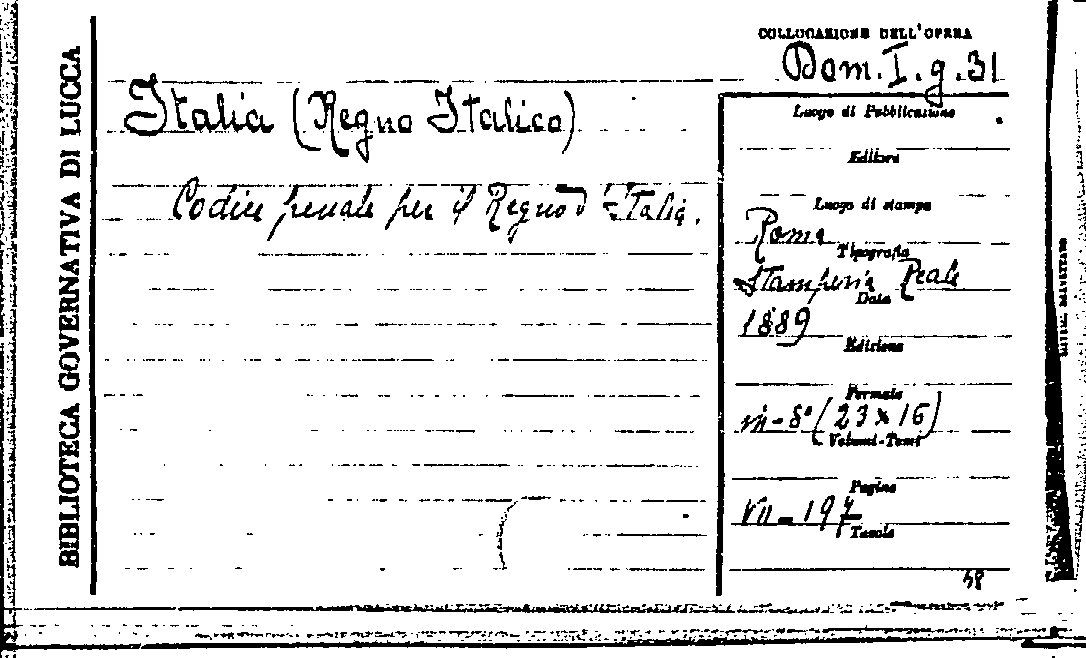 BIBLIOTECA GOVERNATIVA DI LUCCA
COLLOCAZIONE DELL'OPERA
Dom. I. g. 31
Italia (Regno Italico)
Codice penale per il Regno d'Italia.
Luogo di Pubblicazione
Editore
Luogo di stampa
Roma
Tipografia
Stamperia Reale
Data
1889
Edizione
Formato
in-8° (23 x 16)
Volumi-Tomi
Pagine
VII - 197
Tavole